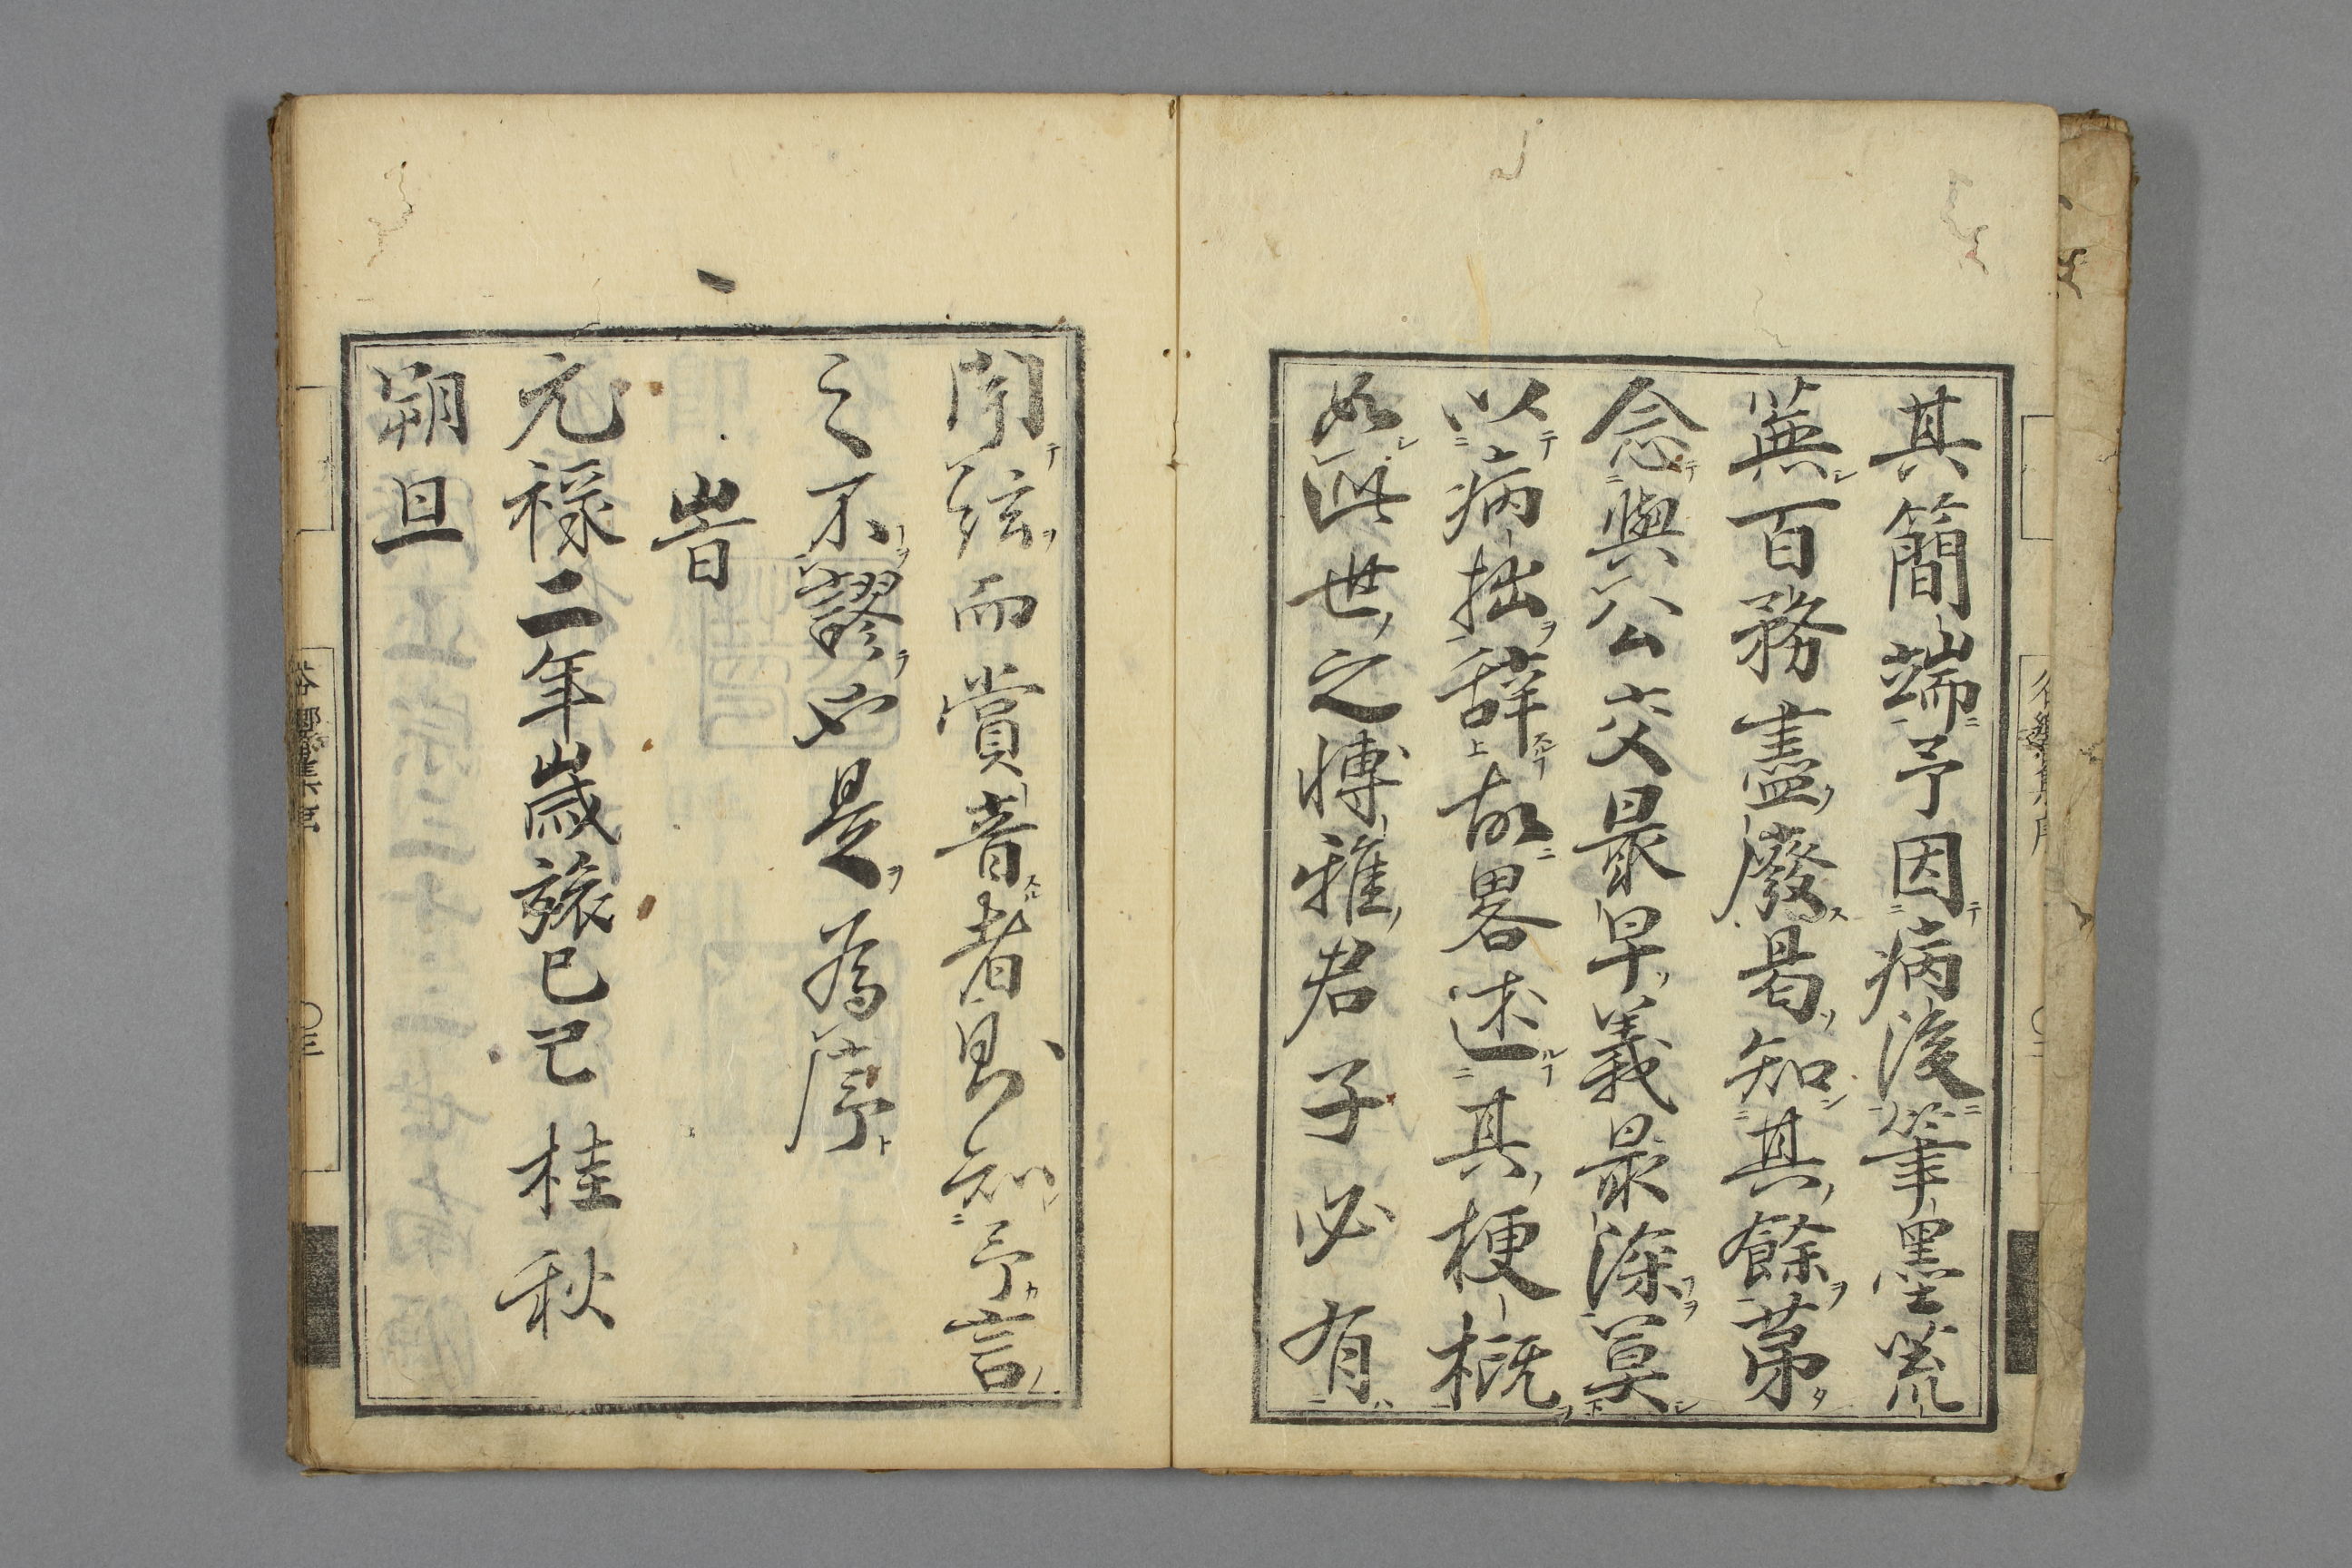 其簡端予因病後筆墨荒
蕪百務盡廢曷知其餘苐
念與公交最早義最深莫
以病拙辞故畧述其梗概
如此世之博雅君子必有
聞弦而賞音者具知予言
之不謬也是為序
旹
元禄二年歳旅已巳桂秋
朔旦